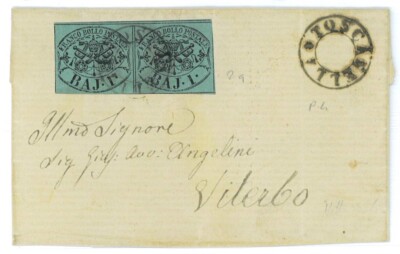 FRANCO BOLLO POSTALE FRANCO BOLLO POSTALE
BAJ. 1. BAJ. 1.
TOSCANELLA
2a
Pli
Illmo Signore
Sig Giu: Avv: Angelini
Viterbo